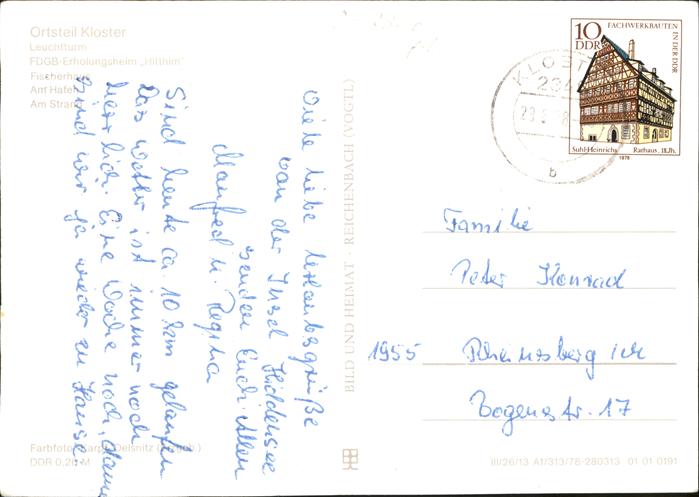 Ortsteil Kloster
Leuchtturm
FDGB-Erholungsheim „Hitthim"
Fischerhaus
Am Hafen
Am Strand
Viele liebe Urlaubsgrüße
von der Insel Hiddensee
senden Euch Allen
Manfred u. Regina
Sind heute ca 10 km gelaufen
Das Wetter ist immer noch
herrlich. Eine Woche noch, dann
sind wir ja wieder zu Hause.
Farbfoto: Oelsnitz (Erzgeb.)
DDR 0,20 M
BILD UND HEIMAT · REICHENBACH (VOGTL)
10
DDR
FACHWERKBAUTEN IN DER DDR
Suhl-Heinrichs Rathaus, 18.Jh.
1978
KLOSTER
b
Familie
Peter Konrad
1955 Rheinsberg
Bogenstr. 17
III/26/13 A1/313/78-280313 01 01 0191